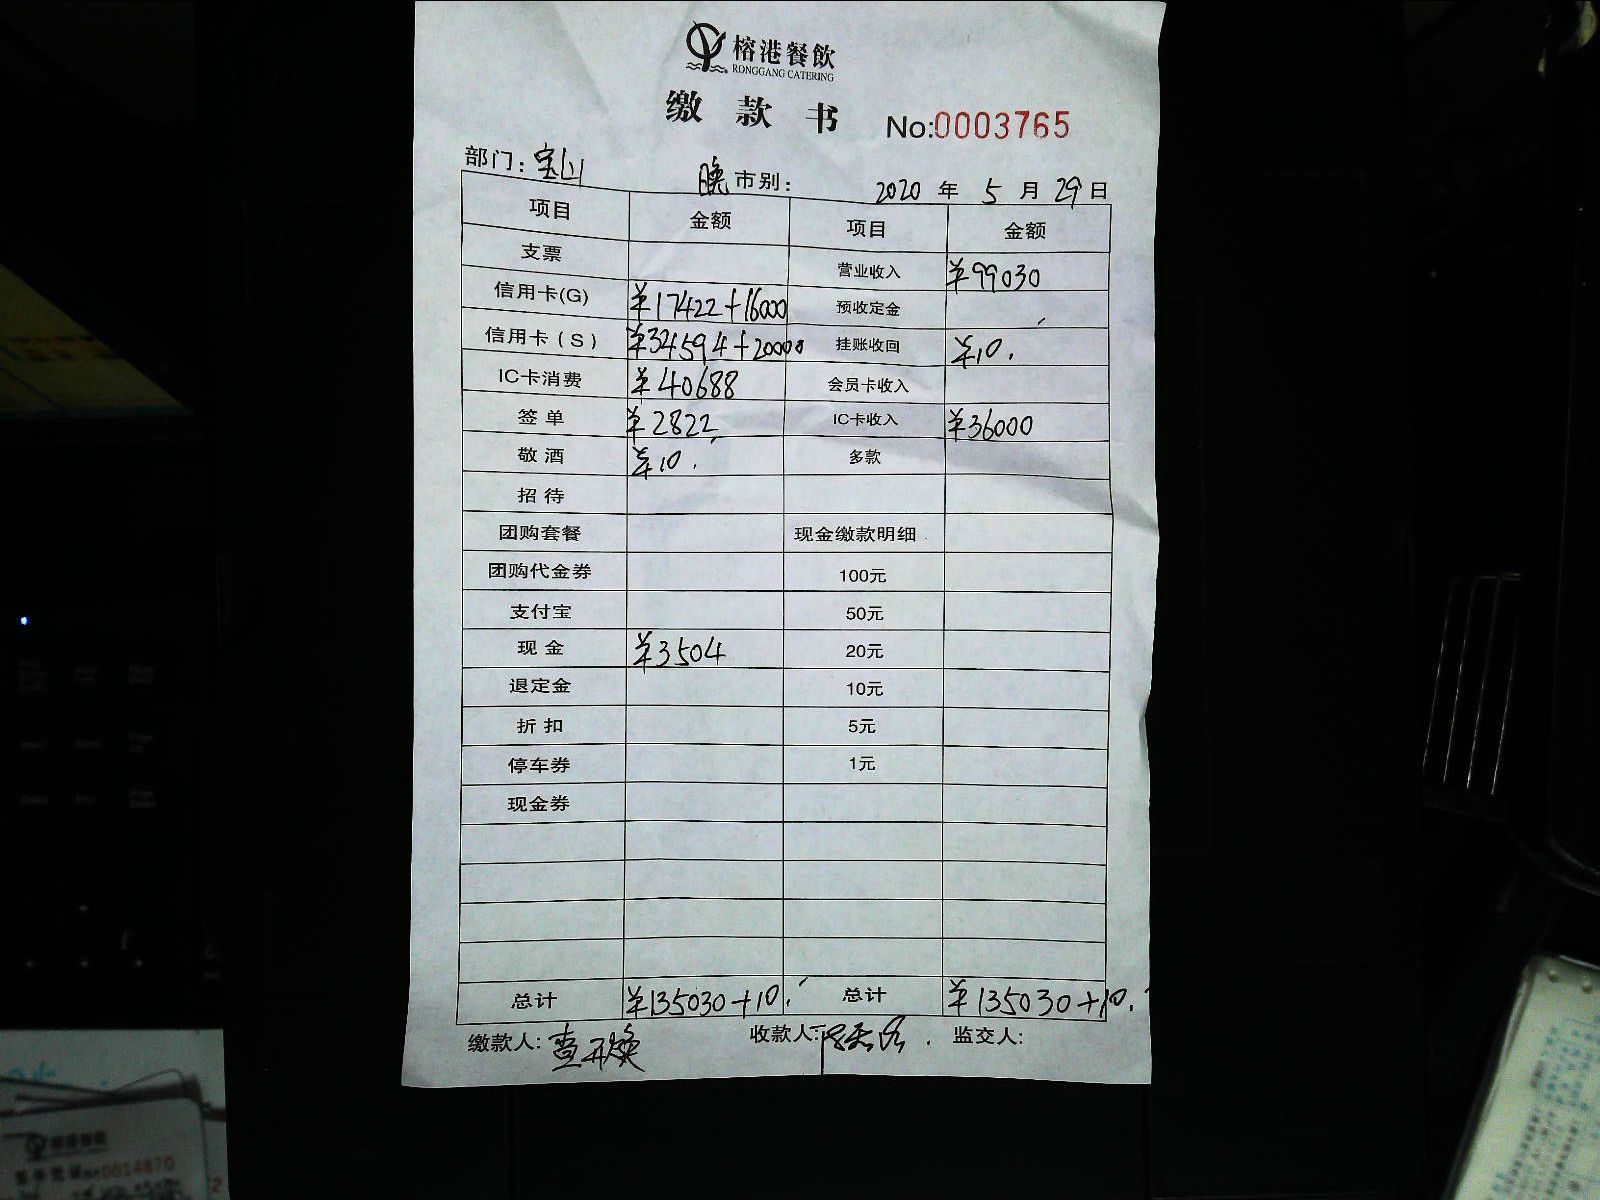 榕港餐飲
RONGGANG CATERING
缴款书 No:0003765
部门:宝山 晚市别: 2020年5月29日
项目 金额 项目 金额
支票 营业收入 ¥99030
信用卡(G) ¥17422+16000 预收定金
信用卡(S) ¥34594+20000 挂账收回 ¥10.
IC卡消费 ¥40688 会员卡收入
签单 ¥2822 IC卡收入 ¥36000
敬酒 ¥10. 多款
招待
团购套餐 现金缴款明细
团购代金券 100元
支付宝 50元
现金 ¥3504 20元
退定金 10元
折扣 5元
停车券 1元
现金券
总计 ¥135030+10. 总计 ¥135030+10.
缴款人: 收款人: 监交人:
0014870